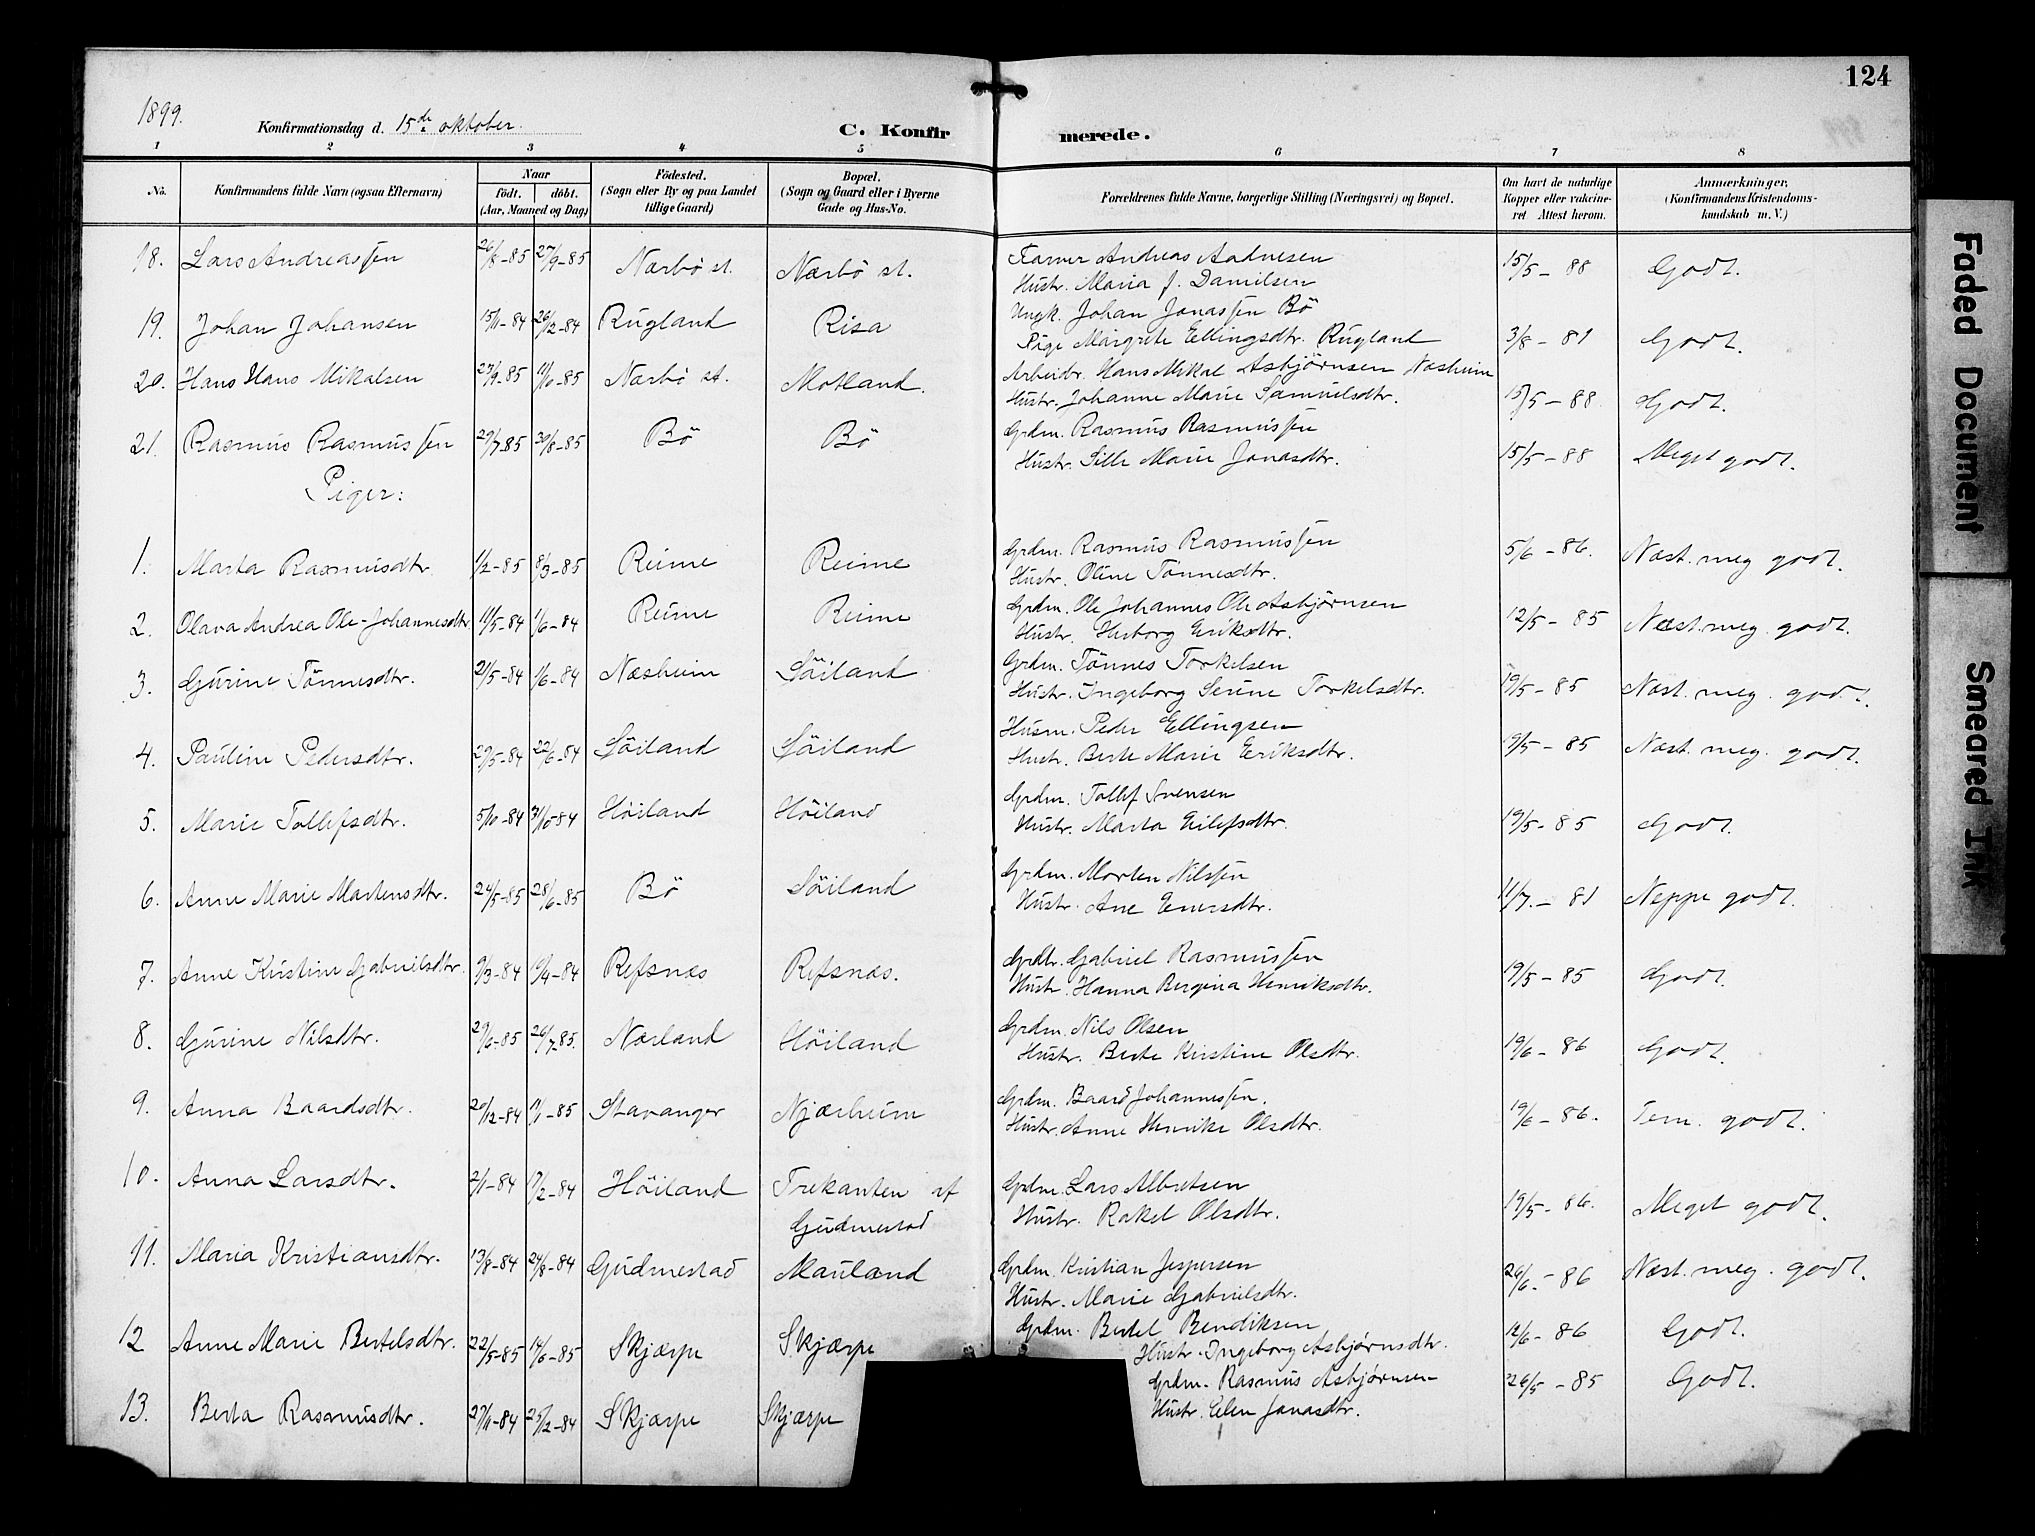 124
1899.
Konfirmationsdag d. 15de oktober.
C. Konfirmerede.
1 2 3 4 5 6 7 8
No. Konfirmandens fulde Navn (ogsaa Efternavn) Naar født. døbt. (Aar, Maaned og Dag) Fødested. (Sogn eller By og paa Landet tillige Gaard) Bopæl. (Sogn og Gaard eller i Byerne Gade og Hus-No. Forældrenes fulde Navne, borgerlige Stilling (Næringsvei) og Bopæl. Om havt de naturlige Kopper eller vakcineret Attest herom. Anmærkninger. (Konfirmandens Kristendomskundskab m. V.)
18. Lars Andreassen 26/8-85 27/9-85 Nærbö st. Nærbö st. Farver Andreas Aadnesen 15/5-88 Godt.
Hustr. Maria J. Danielsen
19. Johan Johansen 15/11-84 26/12-84 Rugland Risa Ungk. Johan Jonassen Bö
Pige Margrete Ellingsdtr. Rugland 3/8-81 Godt.
20. Hans Hans Mikalsen 27/9-85 11/10-85 Nærbö st. Motland. Arbeidr. Hans Mikal Asbjörnsen Næsheim
Hustr. Johanne Marie Samuelsdtr. 15/5-88 Godt.
21. Rasmus Rasmussen 29/7-85 30/8-85 Bö Bö Grdm. Rasmus Rasmussen
Hustr. Sille Marie Jonasdtr. 15/5-88 Meget godt.
Piger:
1. Marta Rasmusdtr. 1/2-85 8/3-85 Reime Reime Grdm. Rasmus Rasmussen 5/6-86. Næst. meg godt.
Hustr. Oline Tönnesdtr.
2. Olava Andrea Ole-Johannesdtr. 11/5-84 1/6-84 Reime Reime Grdm. Ole Johannes Ole Asbjörnsen 12/5-85 Næst. meg. godt.
Hustr. Herborg Eriksdtr.
3. Gurine Tönnesdtr. 21/5-84 1/6-84 Næsheim Söiland Grdm. Tönnes Torkelsen
Hustr. Ingeborg Serine Torkelsdtr. 19/5-85 Næst. meg. godt.
4. Pauline Pedersdtr. 29/5-84 22/6-84 Söiland Söiland Husm. Peder Ellingsen
Hustr. Berte Marie Eriksdtr. 19/5-85 Næst. meg. godt.
5. Marie Tollefsdtr. 5/10-84 31/10-84 Höiland Höiland Grdm. Tollef Svensen
Hustr. Marta Eilefsdtr. 19/5-85 Godt.
6. Anne Marie Martensdtr. 24/5-85 28/6-85 Bö Söiland Grdm. Morten Nilssen
Hustr. Ane Enersdtr. 11/7.-81 Neppe godt.
7. Anne Kirstine Gabrielsdtr. 9/3-84 19/4-84 Refsnæs Refsnæs. Grdbr. Gabriel Rasmussen
Hustr. Hanna Bergina Henriksdtr. 19/5-85 Godt.
8. Gurine Nilsdtr. 29/6-85 26/7-85. Nærland Höiland Grdm. Nils Olsen
Hustr. Berte Kirstine Olsdtr. 19/6-86 Godt.
9. Anna Baardsdtr. 20/12-84 11/1-85 Stavanger Njærheim Grdm. Baard Johannessen.
Hustr. Anne Henrike Olsdtr. 19/6-86. Tem. godt.
10. Anna Larsdtr. 2/1-84 17/2-84 Höiland Trekanten af Gudmestad Grdm. Lars Albretsen
Hustr. Rakel Olsdtr. 19/5-86. Meget godt.
11. Maria Kristiansdtr. 13/8-84 24/8-84 Gudmestad Mauland Grdm. Kristian Jespersen 26/6.-86 Næst. meg. godt.
Hustr. Marie Gabrielsdtr.
12 Anne Marie Bertelsdtr. 22/5-85 14/6-85 Skjærpe Skjærpe Grdm. Bertel Bendiksen 12/6-86 Godt.
Hustr. Ingeborg Asbjörnsdtr.
13. Berta Rasmusdtr. 27/11-84 25/12-84 Skjærpe Skjærpe Grdm. Rasmus Asbjörnsen 26/5-85 Godt.
Hustr. Elen Jonasdtr.
Faded Document
Smeared Ink